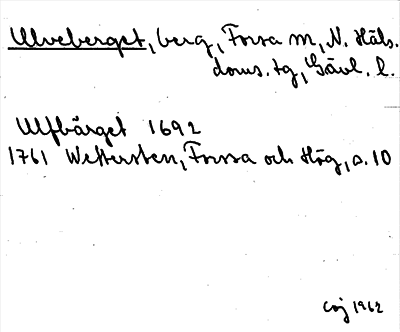 Ulveberget, berg, Forsa sn, N. Häls.
doms. tg, Gävl. l.
Ulfbärget 1692
1761 Wettersten, Forssa och Hög, s. 10
1962